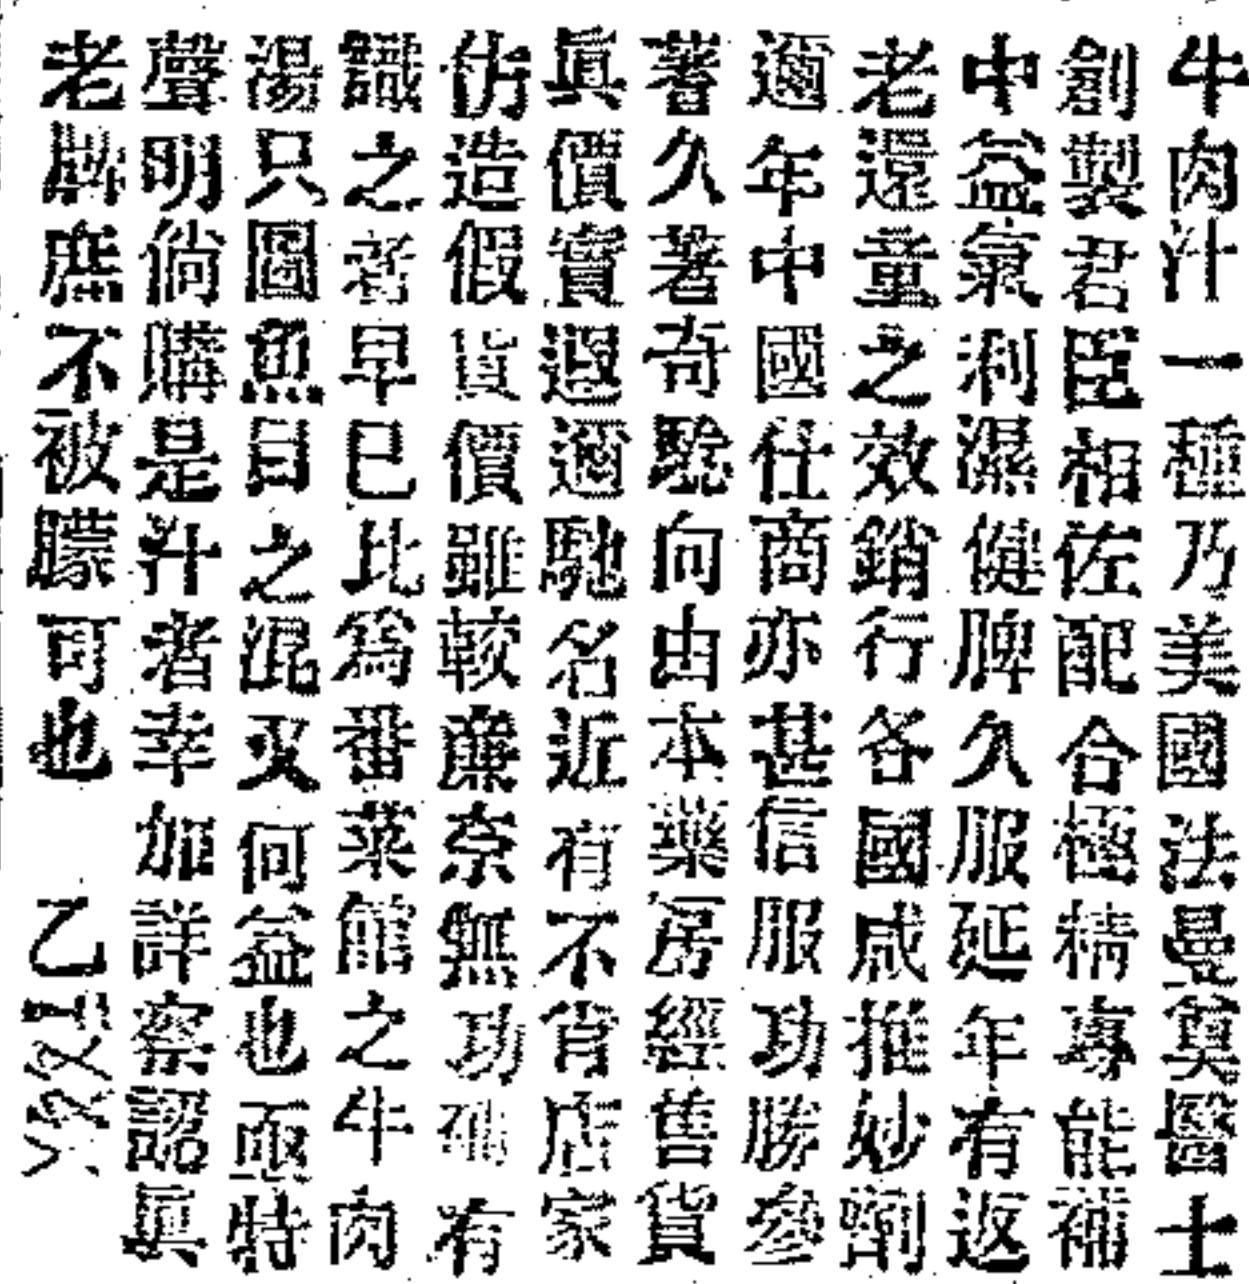 牛肉汁一種乃美國法曼莫醫士
創製君臣相佐配合極精專能補
中益氣利濕健脾久服延年有返
老還童之效銷行各國咸推妙劑
邇年中國仕商亦甚信服功勝參
蓍久著奇驗向由本藥房經售貨
眞價實遐邇馳名近有不肖店家
仿造假貨價雖較廉奈無功 有
識之者早已比爲番菜館之牛肉
湯只圖魚目之混又何益也亟特
聲明倘購是汁者幸加詳察認眞
老牌庶不被朦可也 乙